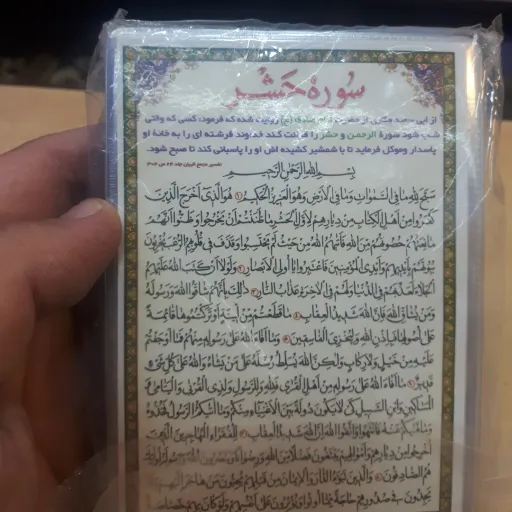 سورهٔ حَشْر
از ابی حامد مکاری از حضرت امام صادق (ع) روایت شده که فرمود: کسی که وقتی
شب شود سورهٔ الرحمن و حشر را قرائت کند خداوند فرشته ای را به خانهٔ او
پاسدار وموکل فرماید تا با شمشیر کشیده اش او را پاسبانی کند تا صبح شود.
تفسیر مجمع البیان جلد
بِسْمِ اللهِ الرَّحْمٰنِ الرَّحيمِ
سَبَّحَ لِلّٰهِ مَا فِي السَّمٰوَاتِ وَمَا فِي الْأَرْضِ وَهُوَ الْعَزيزُ الْحَكيمُ ① هُوَ الَّذي أَخْرَجَ الَّذينَ
كَفَرُوا مِنْ أَهْلِ الْكِتَابِ مِنْ دِيَارِهِمْ لِأَوَّلِ الْحَشْرِ مَا ظَنَنْتُمْ أَنْ يَخْرُجُوا وَظَنُّوا أَنَّهُمْ
مَانِعَتُهُمْ حُصُونُهُمْ مِنَ اللهِ فَأَتَاهُمُ اللهُ مِنْ حَيْثُ لَمْ يَحْتَسِبُوا وَقَذَفَ فِي قُلُوبِهِمُ الرُّعْبَ يُخْرِبُونَ
بُيُوتَهُمْ بِأَيْدِيهِمْ وَأَيْدِي الْمُؤْمِنينَ فَاعْتَبِرُوا يَا أُولِي الْأَبْصَارِ ② وَلَوْلَا أَنْ كَتَبَ اللهُ عَلَيْهِمُ
الْجَلَاءَ لَعَذَّبَهُمْ فِي الدُّنْيَا وَلَهُمْ فِي الْآخِرَةِ عَذَابُ النَّارِ ③ ذٰلِكَ بِأَنَّهُمْ شَاقُّوا اللهَ وَرَسُولَهُ
وَمَنْ يُشَاقِّ اللهَ فَإِنَّ اللهَ شَديدُ الْعِقَابِ ④ مَا قَطَعْتُمْ مِنْ لِينَةٍ أَوْ تَرَكْتُمُوهَا قَائِمَةً
عَلَى أُصُولِهَا فَبِإِذْنِ اللهِ وَلِيُخْزِيَ الْفَاسِقينَ ⑤ وَمَا أَفَاءَ اللهُ عَلَى رَسُولِهِ مِنْهُمْ فَمَا أَوْجَفْتُمْ
عَلَيْهِ مِنْ خَيْلٍ وَلَا رِكَابٍ وَلٰكِنَّ اللهَ يُسَلِّطُ رُسُلَهُ عَلَى مَنْ يَشَاءُ وَاللهُ عَلَى كُلِّ شَيْءٍ
قَديرٌ ⑥ مَا أَفَاءَ اللهُ عَلَى رَسُولِهِ مِنْ أَهْلِ الْقُرَى فَلِلّٰهِ وَلِلرَّسُولِ وَلِذِي الْقُرْبَى وَالْيَتَامَى وَ
الْمَسَاكينِ وَابْنِ السَّبيلِ كَيْ لَا يَكُونَ دُولَةً بَيْنَ الْأَغْنِيَاءِ مِنْكُمْ وَمَا آتَاكُمُ الرَّسُولُ فَخُذُوهُ
وَمَا نَهَاكُمْ عَنْهُ فَانْتَهُوا وَاتَّقُوا اللهَ إِنَّ اللهَ شَديدُ الْعِقَابِ ⑦ لِلْفُقَرَاءِ الْمُهَاجِرينَ الَّذينَ
أُخْرِجُوا مِنْ دِيَارِهِمْ وَأَمْوَالِهِمْ يَبْتَغُونَ فَضْلًا مِنَ اللهِ وَرِضْوَانًا
هُمُ الصَّادِقُونَ ⑧ وَالَّذينَ تَبَوَّءُوا الدَّارَ وَالْإِيمَانَ مِنْ قَبْلِهِمْ يُحِبُّونَ مَنْ هَاجَرَ إِلَيْهِمْ
يَجِدُونَ فِي صُدُورِهِمْ حَاجَةً مِمَّا أُوتُوا وَيُؤْثِرُونَ عَلَى أَنْفُسِهِمْ وَلَوْ كَانَ بِهِمْ خَصَاصَةٌ